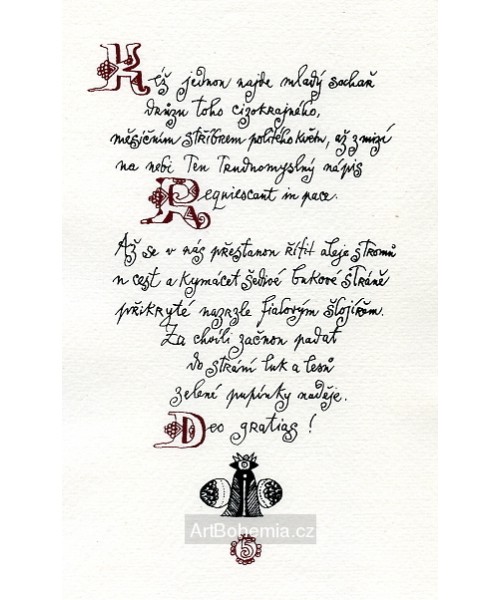 Kéž jednou najde mladý sochař
drůzu toho cizokrajného,
měsíčním stříbrem politého květu, až zmizí
na nebi Ten Trudnomyslný nápis
Requiescant in pace.
Až se v nás přestanou řítit aleje stromů
u cest a kymácet šedivé bukové stráně
přikryté nazrzle fialovým šlojířem.
Za chvíli začnou padat
do strání luk a lesů
zelené pupínky naděje.
Deo gratias!
ArtBohemia.cz
5